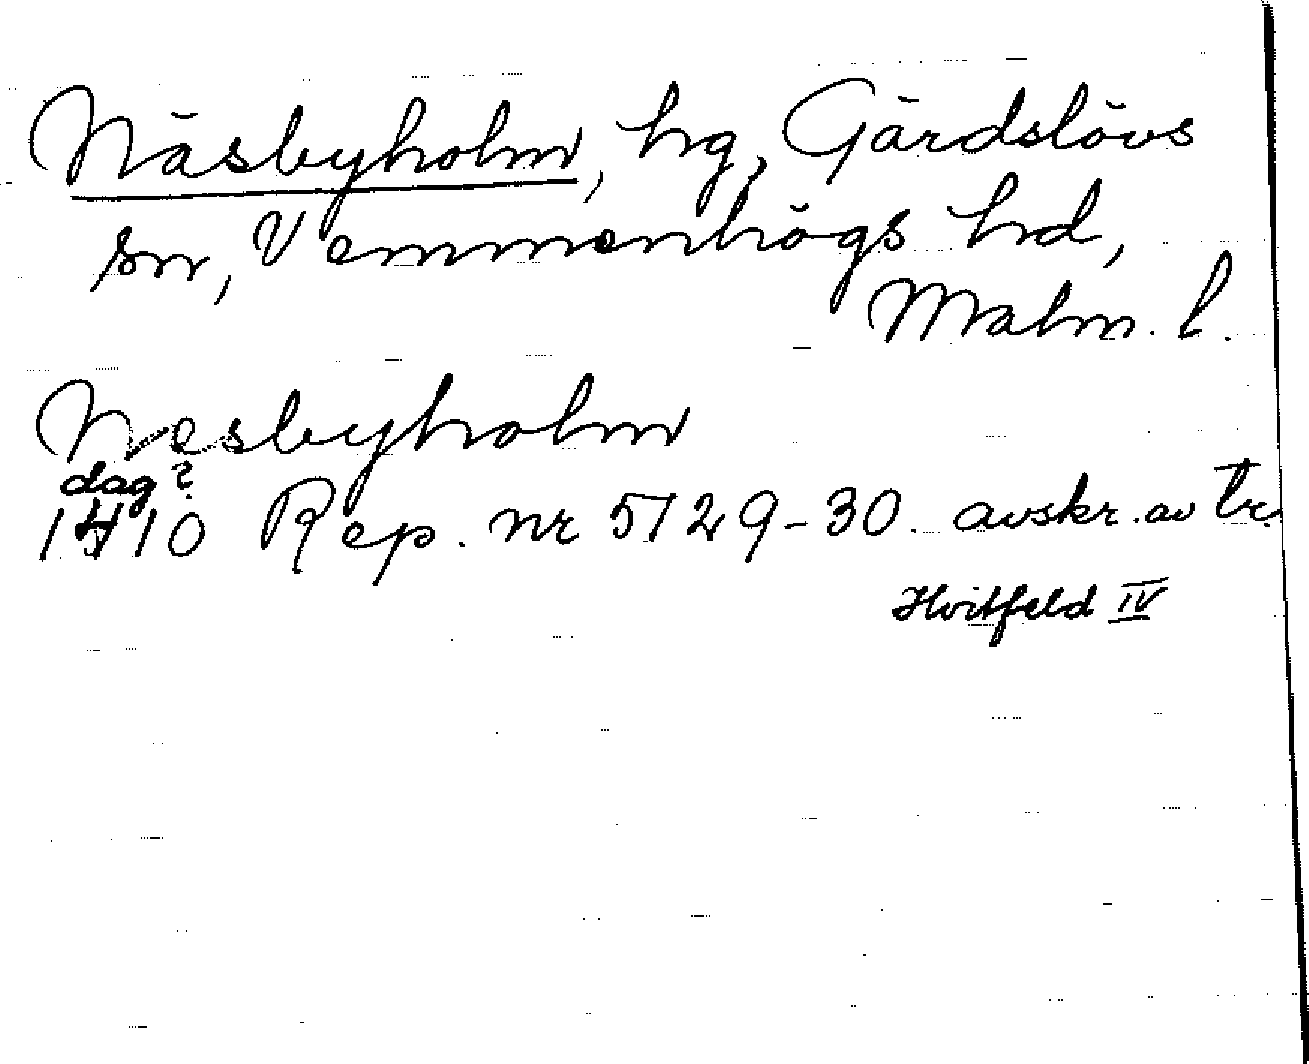 Näsbyholm, hg, Gärdslövs
sn, Vemmenhögs hd,
Malm. l.
Nesbyholm
dag?
1410 Rep. nr 5129-30. avskr. av tr.
Hvitfeld IV